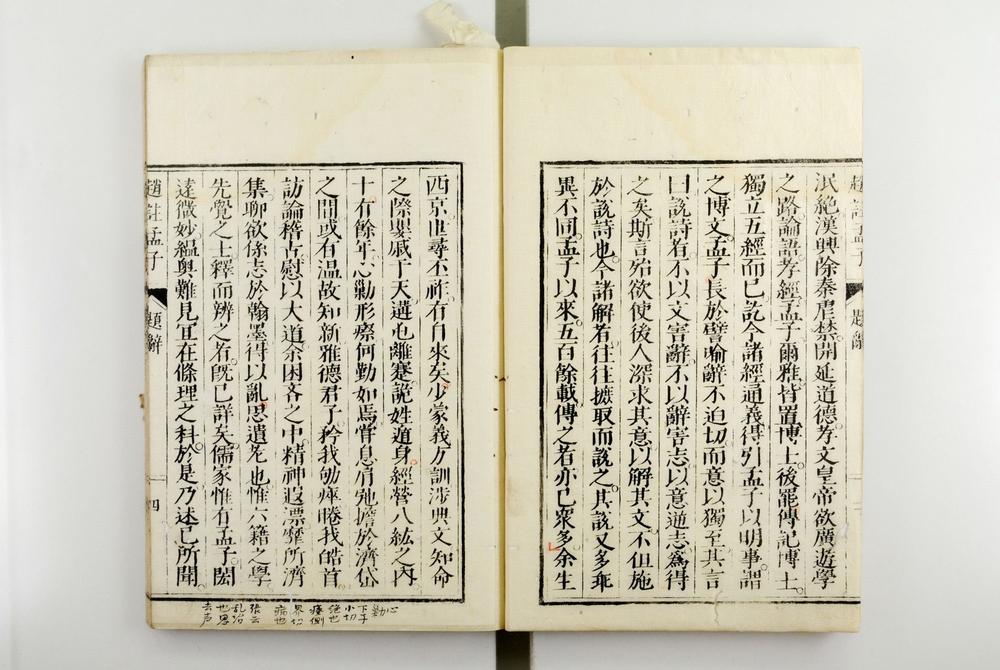 泯絕漢興除秦虐禁開延道德孝文皇帝欲廣遊學
之路論語孝經孟子爾雅皆置博士後罷傳記博士
獨立五經而已訖今諸經通義得引孟子以明事謂
之博文孟子長於譬喻辭不迫切而意以獨至其言
曰說詩者不以文害辭不以辭害志以意逆志爲得
之矣斯言殆欲使後人深求其意以解其文不但施
於說詩也今諸解者往往摭取而說之其說又多乖
異不同孟子以來五百餘載傳之者亦已衆多余生
西京世尋丕祚有自來矣少蒙義方訓涉典文知命
之際嬰戚于天遘屯離蹇詭姓遁身經營八紘之內
十有餘年心勦形瘵何勤如焉嘗息肩弛擔於濟岱
之閒或有温故知新雅德君子矜我劬瘁睠我皓首
訪論稽古慰以大道余困吝之中精神遐漂靡所濟
集聊欲係志於翰墨得以亂思遺老也惟六籍之學
先覺之士釋而辨之者旣已詳矣儒家惟有孟子閎
遠微妙緼奧難見宜在條理之科於是乃述己所聞
趙註孟子 題辭 四
心
勦
下子
小切
絕也
瘵側
界切
病也
張云
乱治
也思
去声